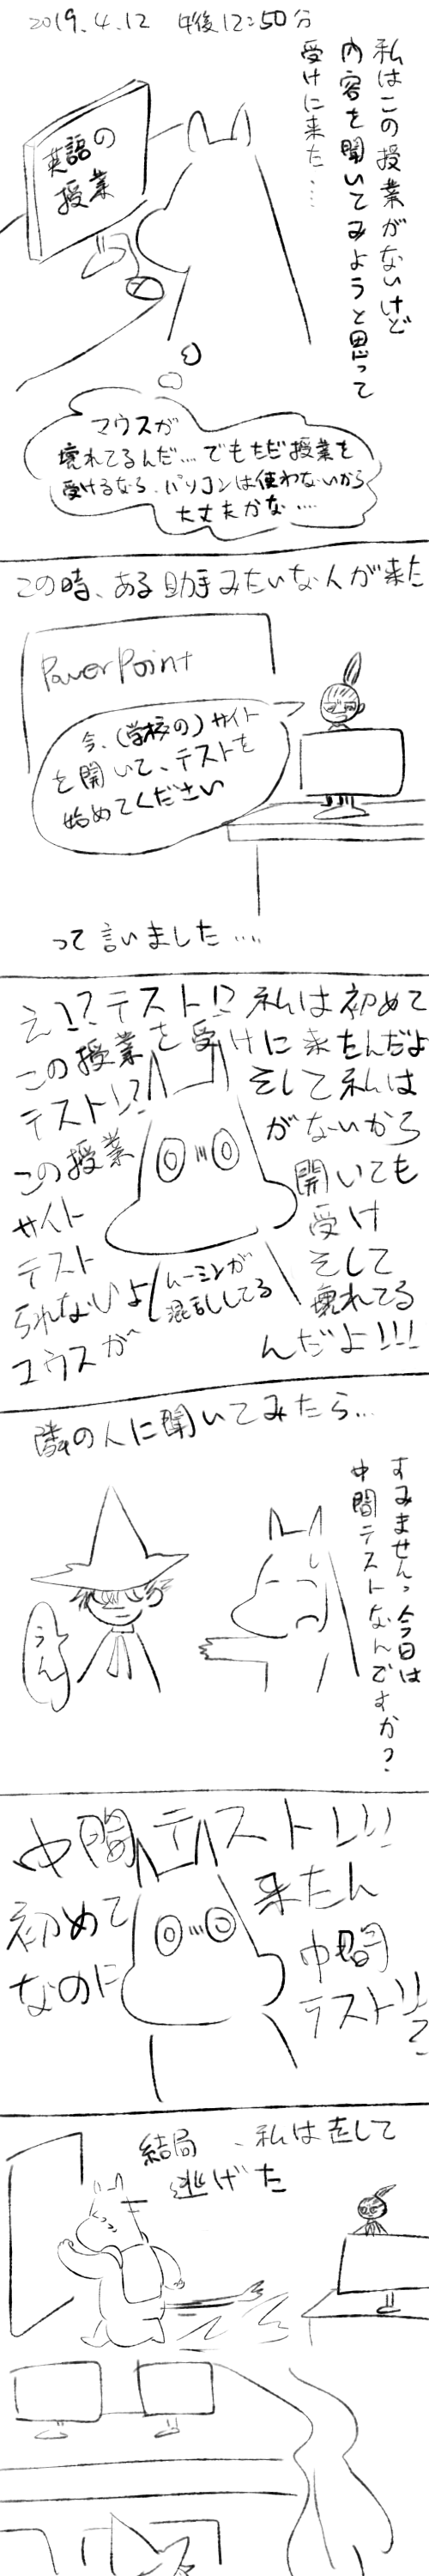 2019.4.12 午後12:50分
私はこの授業がないけど
内容を聞いてみようと思って
受けに来た....
英語の
授業
マウスが
壊れてるんだ...でもただ授業を
受けるなら、パソコンは使わないから
大丈夫かな....
この時、ある助手みたいな人が来た
PowerPoint
今、(学校の)サイト
を開いて、テストを
始めてください
って言いました....
え!?テスト!?私は初めて
この授業を受けに来たんだよ
テスト!?そして私は
この授業がないから
サイト開いても
テスト受け
られないよそして
マウスが壊れてる
んだよ!!!
ムーミンが
混乱してる
隣の人に聞いてみたら...
すみませんっ今日は
中間テストなんですか?
うん
中間テスト!!!
初めて来たん
なのに中間
テスト!!?
結局、私は走して
逃げた